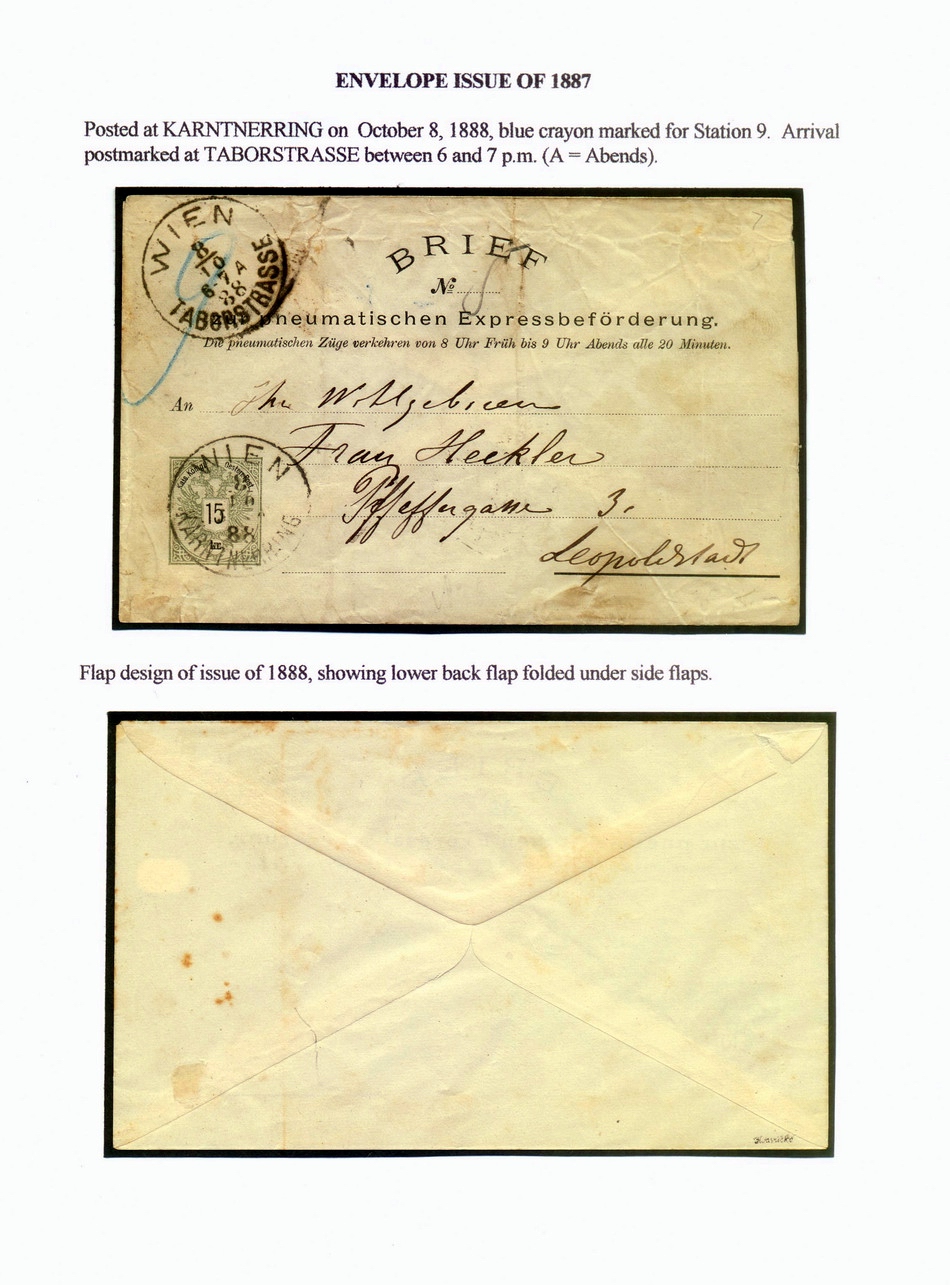 ENVELOPE ISSUE OF 1887
Posted at KARNTNERRING on October 8, 1888, blue crayon marked for Station 9. Arrival
postmarked at TABORSTRASSE between 6 and 7 p.m. (A = Abends).
WIEN
8/10
6-7 A
88
TABORSTRASSE
9
7
BRIEF
No. 8
pneumatischen Expressbeförderung.
Die pneumatischen Züge verkehren von 8 Uhr Früh bis 9 Uhr Abends alle 20 Minuten.
An
Frau Heckler
Pfeffergasse 3.
Leopoldstadt
WIEN
8
10
88
KÄRNTNERRING
15
kr.
Flap design of issue of 1888, showing lower back flap folded under side flaps.